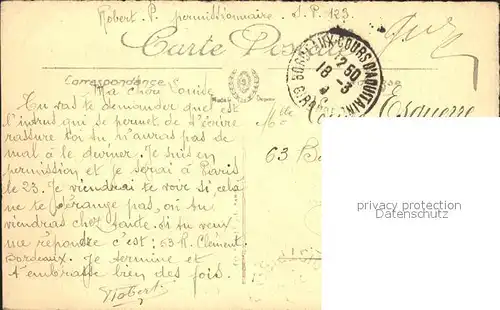 Robert. P. permissionnaire. S. P. 123
Carte Postale
BORDEAUX-COURS D'AQUITAINE
12 50
18 - 3
GIRONDE
Correspondance
Ma chère Louise
Tu vas te demander quel est
l'intrus qui se permet de t'écrire
rassure toi tu n'auras pas de
mal à le deviner. Je suis en
permission et je serai à Paris
le 23. Je viendrai te voir si cela
ne te dérange pas, ou tu
viendras chez tante. Si tu veux
me répondre c'est: 63 R. Clément
Bordeaux. Je termine et
t'embrasse bien des fois.
Robert
Mlle
Esquerre
63 B
privacy protection
for a